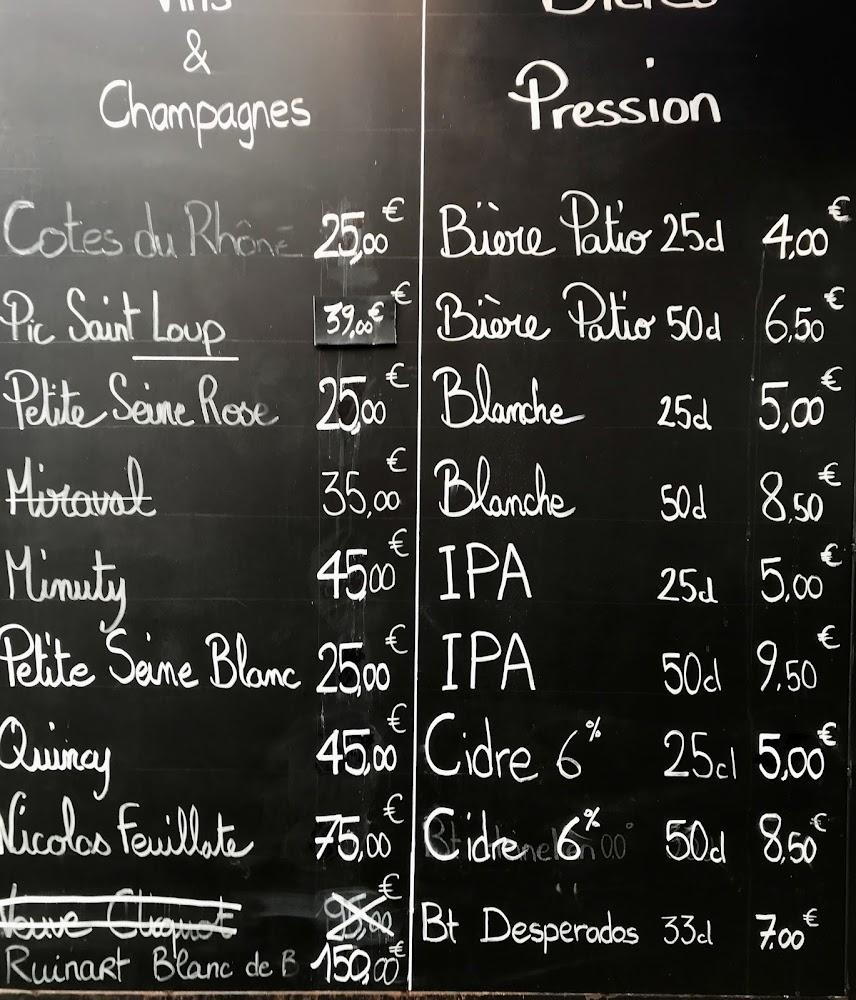 Vins
&
Champagnes
Cotes du Rhône 25,00€
Pic Saint Loup 39,00€ €
Petite Seine Rose 25,00€
Miraval 35,00€
Minuty 45,00€
Petite Seine Blanc 25,00€
Quincy 45,00€
Nicolas Feuillate 75,00€
Veuve Cliquot 95,00€
Ruinart Blanc de B 150,00€
Bières
Pression
Bière Patio 25cl 4,00€
Bière Patio 50cl 6,50€
Blanche 25cl 5,00€
Blanche 50cl 8,50€
IPA 25cl 5,00€
IPA 50cl 9,50€
Cidre 6% 25cl 5,00€
Cidre 6% 50cl 8,50€
Bt Desperados 33cl 7,00€